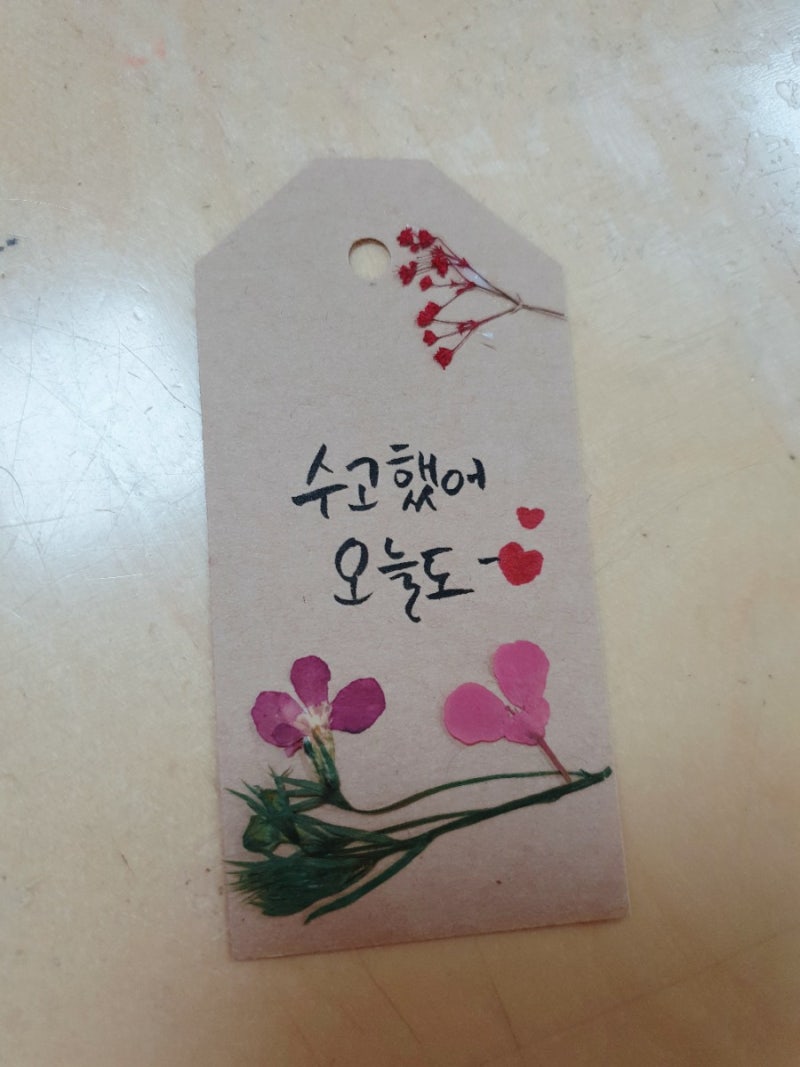 수고했어
오늘도